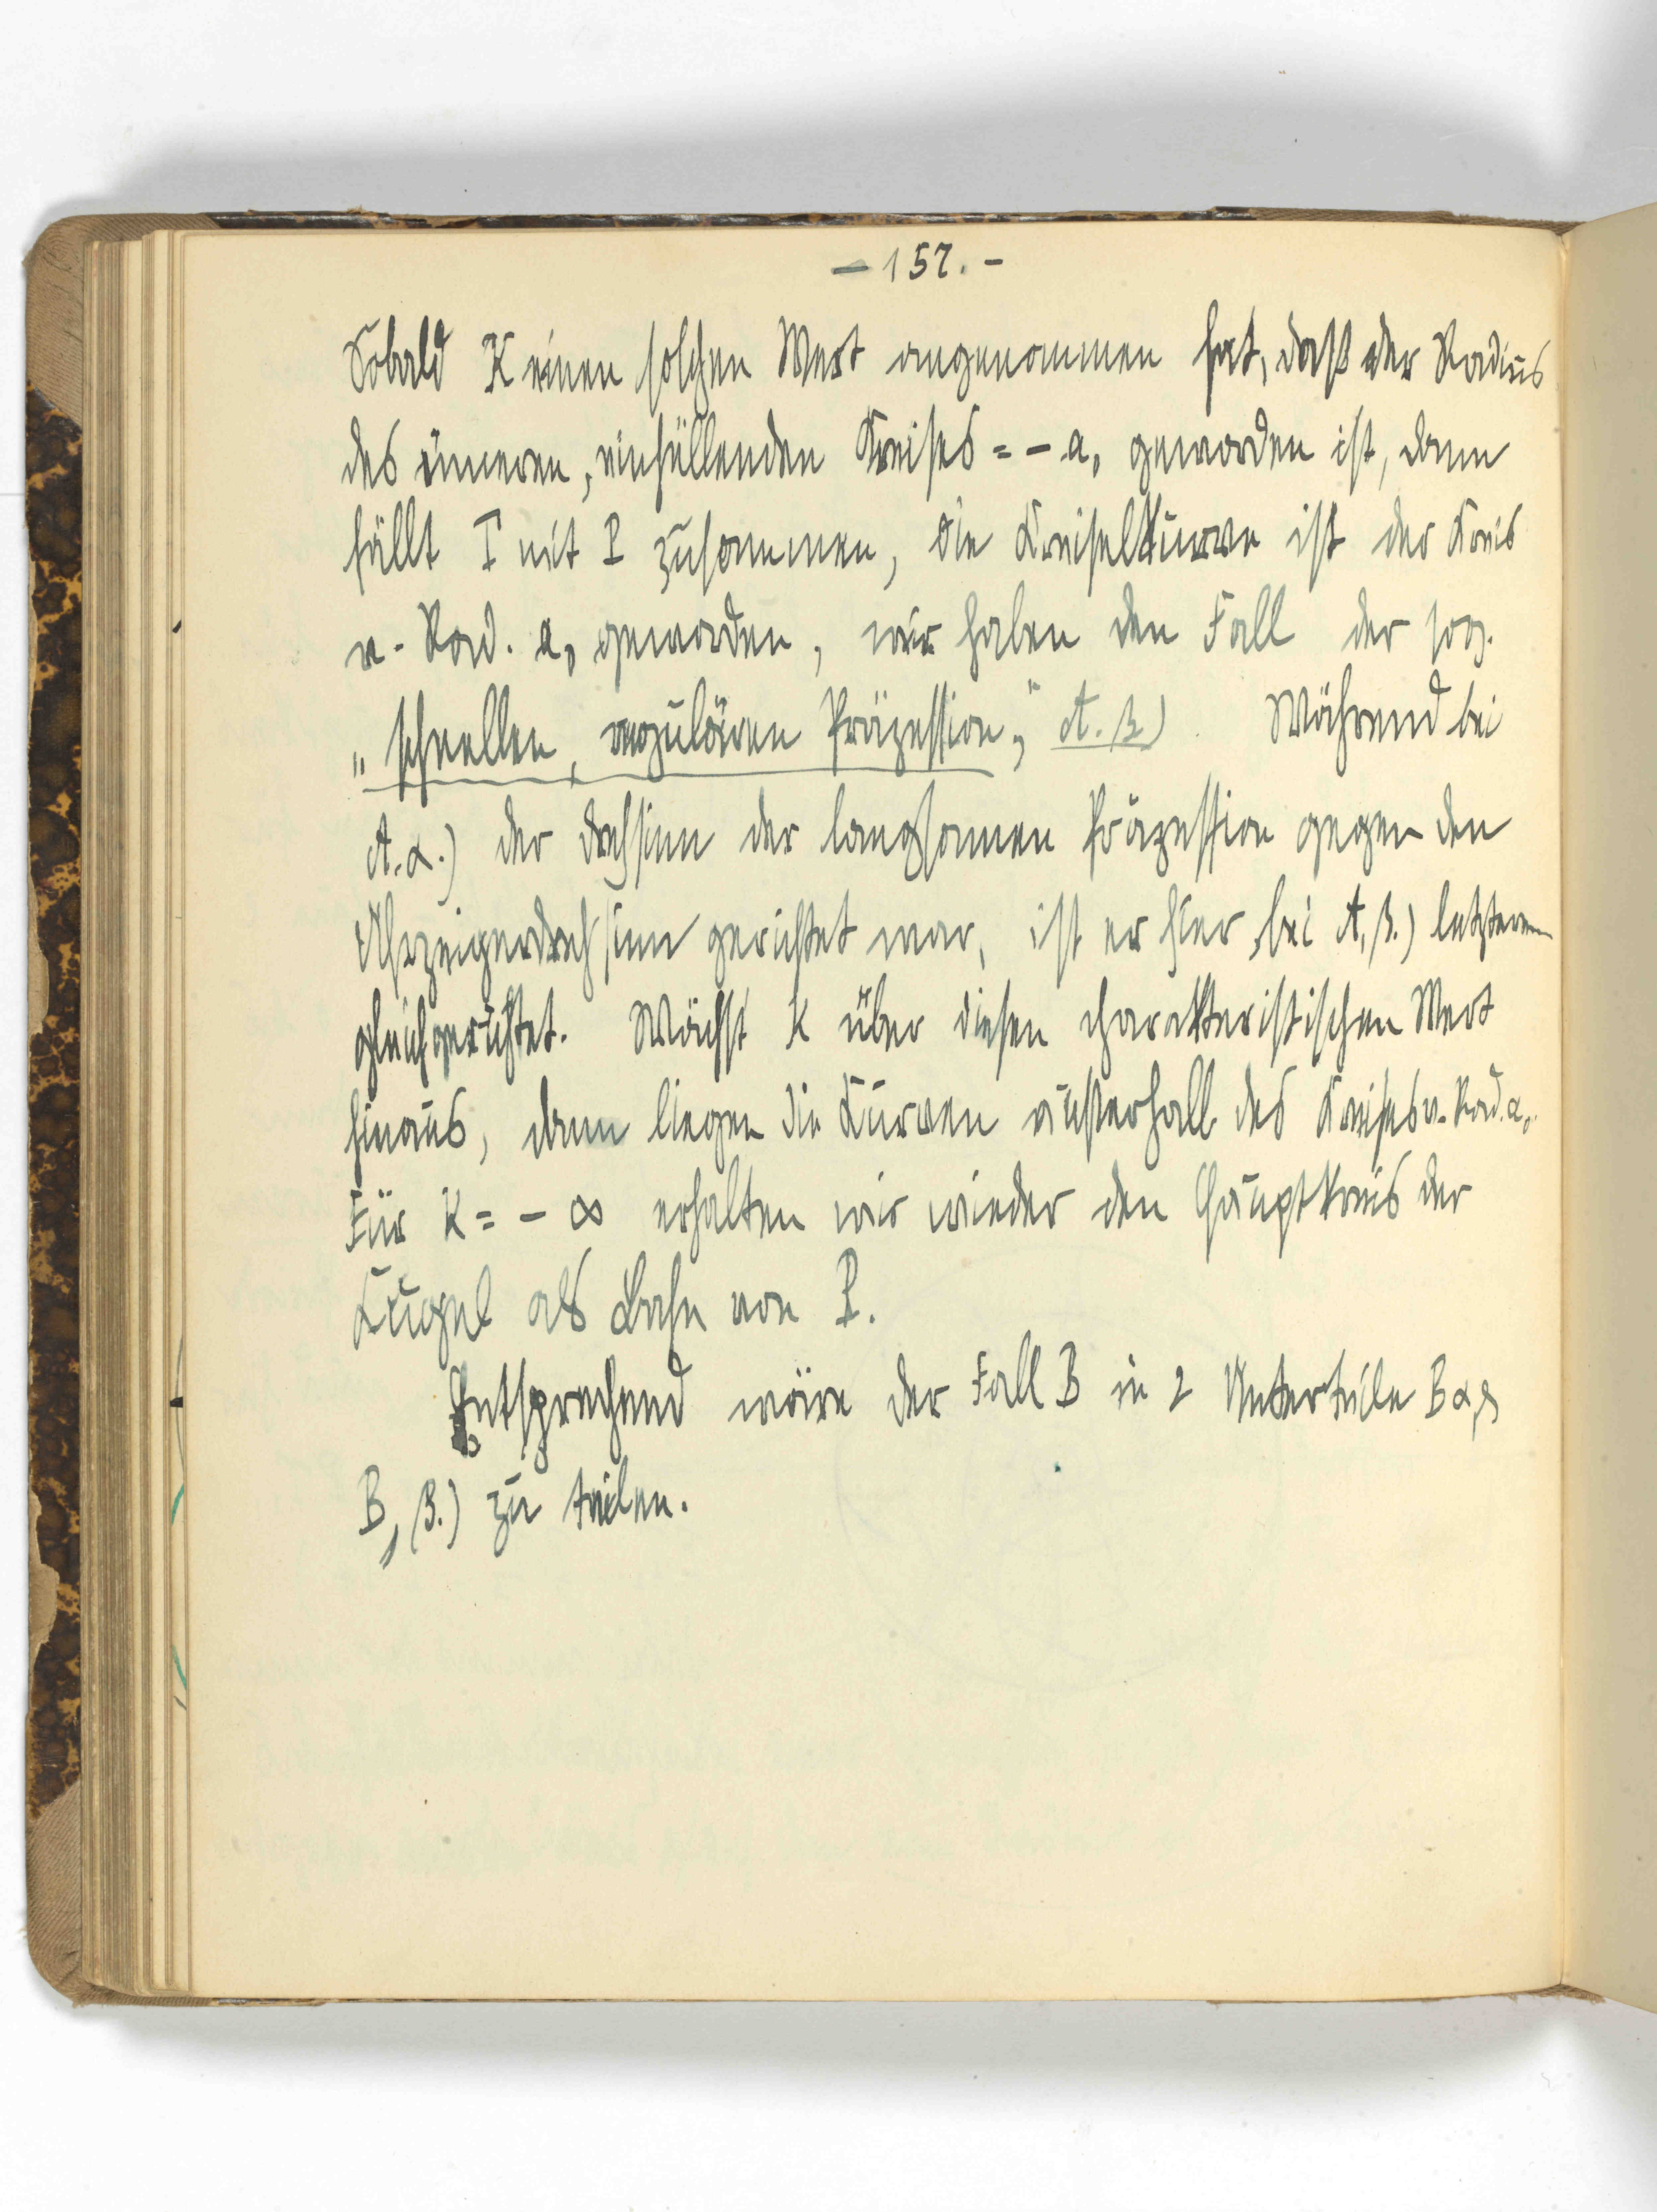 – 157. –
Sobald K einen solchen Wert angenommen hat, daß der Radius
des inneren, einhüllenden Kreises = – a₀ geworden ist, dann
fällt T mit P zusammen, die Kreiselkurve ist der Kreis
v. Rad. a₀ geworden, wir haben den Fall der sog.
„schnellen, regulären Präzession“, A. β.) Während bei
A. α.) der Drehsinn der langsamen Präzession gegen den
Uhrzeigerdrehsinn gerichtet war, ist er hier, bei A, β.) letzterem
gleichgerichtet. Wächst K über diesen charakteristischen Wert
hinaus, dann liegen die Kurven außerhalb des Kreises v. Rad. a₀.
Für K = – ∞ erhalten wir wieder den Hauptkreis der
Kugel als Bahn von P.
Entsprechend wäre der Fall B in 2 Unterteile B α,
B, β.) zu teilen.